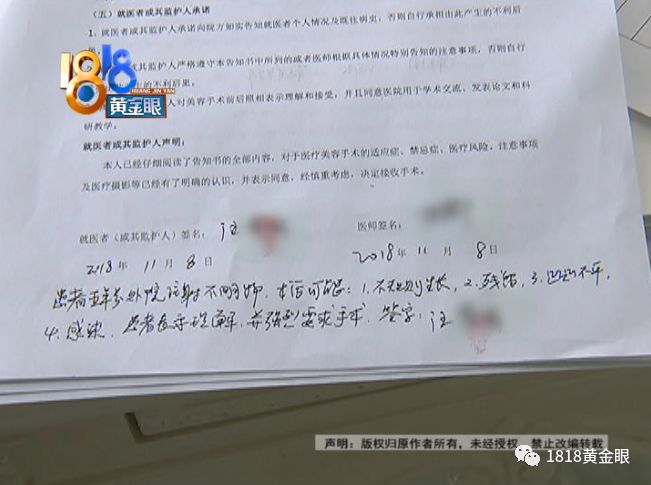 （五）就医者或其监护人承诺
1、就医者或其监护人承诺向院方如实告知就医者个人情况及既往病史，否则自行承担由此产生的不利后
其监护人严格遵守本告知书中所列的或者医师根据具体情况特别告知的注意事项，否则自行
的不利后果。
人对美容手术前后照相表示理解和接受，并且同意医院用于学术交流、发表论文和科
研教学。
就医者或其监护人声明：
本人已经仔细阅读了告知书的全部内容，对于医疗美容手术的适应症、禁忌症、医疗风险、注意事项
及医疗摄影等已经有了明确的认识，并表示同意，经慎重考虑，决定接收手术。
就医者（或其监护人）签名：汪
医师签名：
2018年 11月 8日
2018年 11月 8日
患者五年前外院注射不明物，术后可能：1、不规则生长，2、残留，3、凹凸不平，
4、感染，患者表示理解，并强烈要求手术. 签字：汪
1818
黄金眼
HUANG JIN YAN
声明：版权归原作者所有，未经授权，禁止改编转载
1818黄金眼